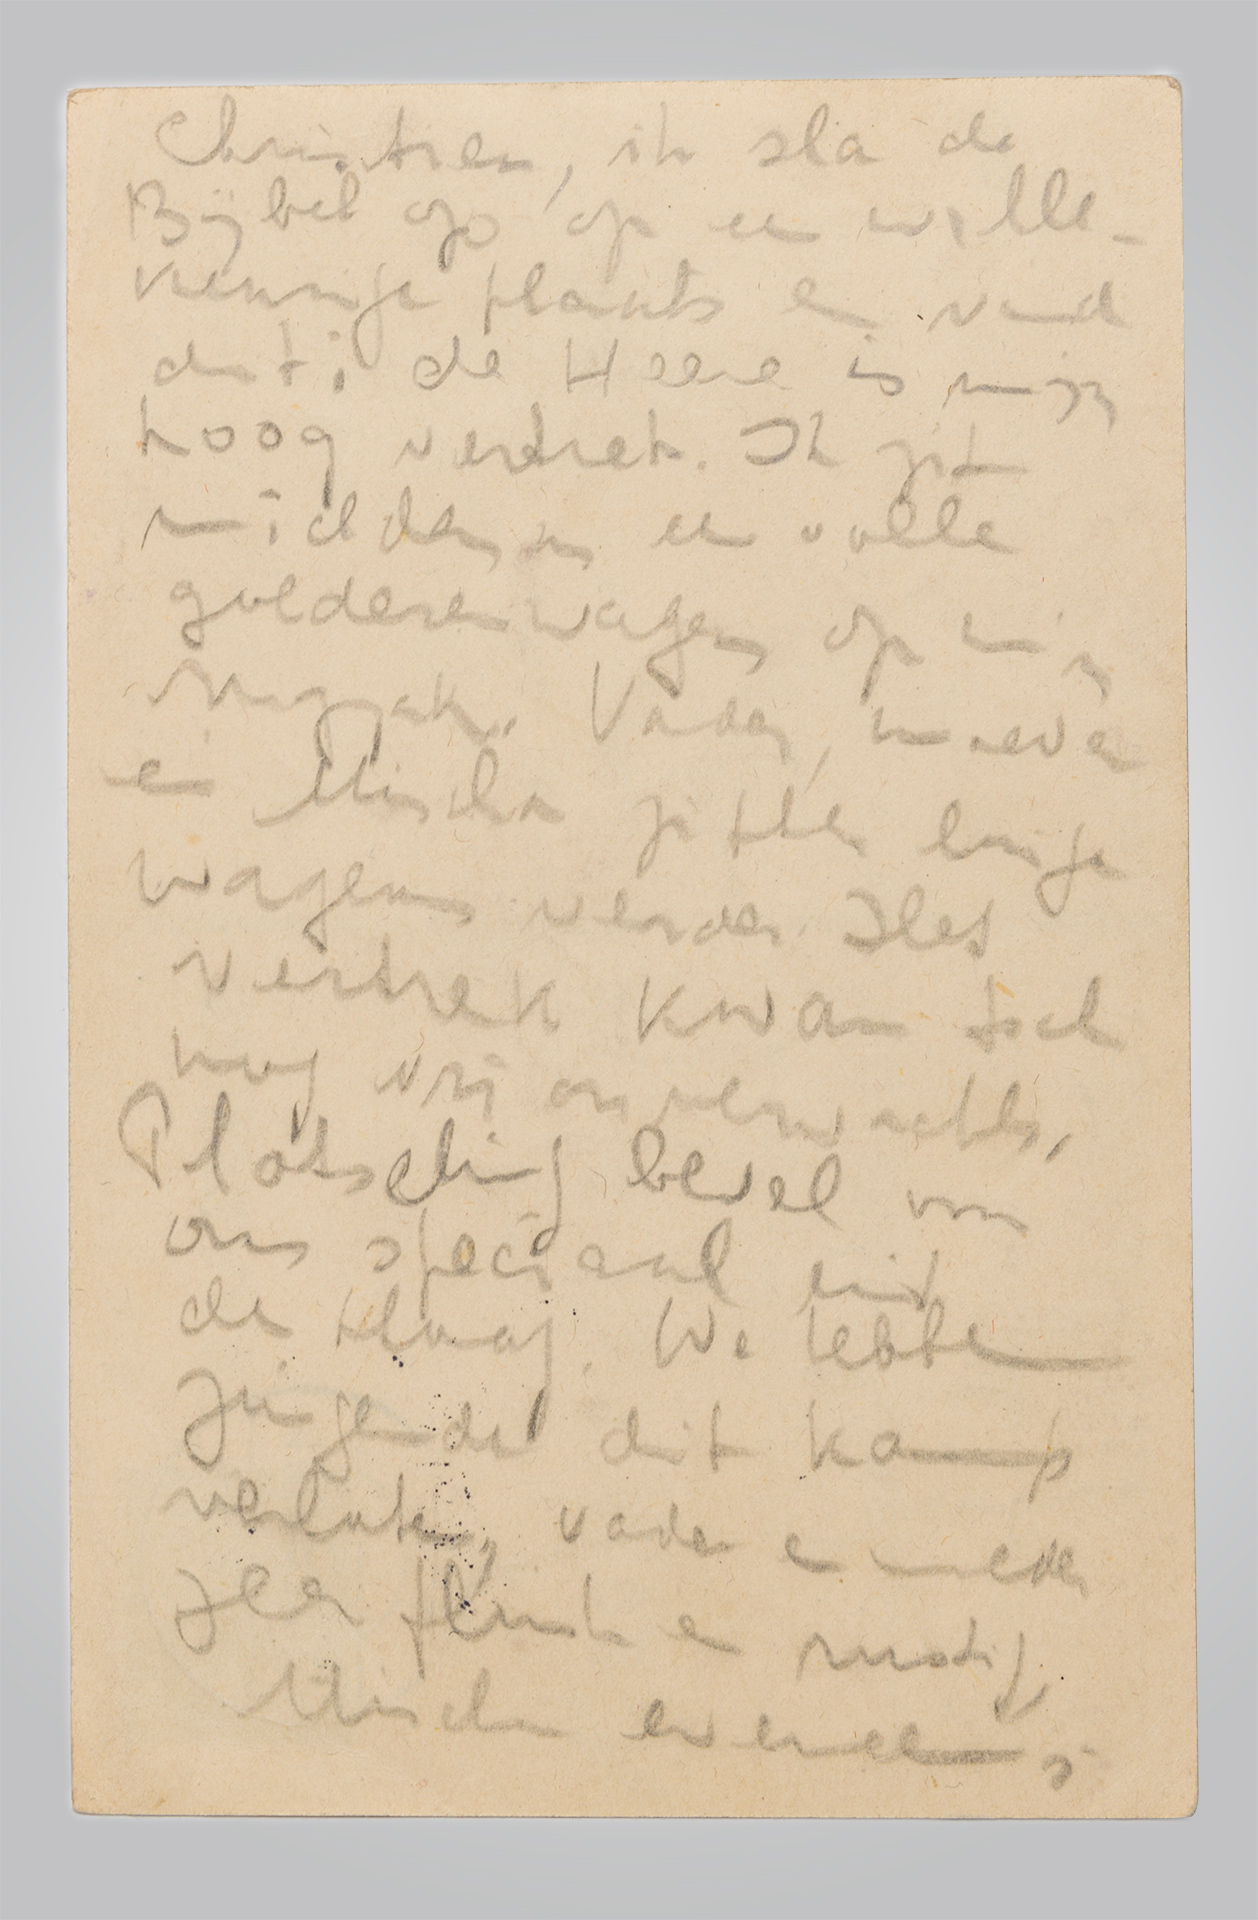 Christien, ik sla de
Bijbel op op een wille-
keurige plaats en vind
dit: de Heere is mijn
hoog vertrek. Ik zit
midden in een volle
goederenwagen op mijn
rugzak. Vader, moeder
en Mischa zitten enige
wagens verder. Het
vertrek kwam toch
nog vrij onverwachts.
Plotseling bevel voor
ons speciaal uit
den Haag. We hebben
zingende dit kamp
verlaten, vader en moeder
zeer flink en rustig
Mischa eveneens